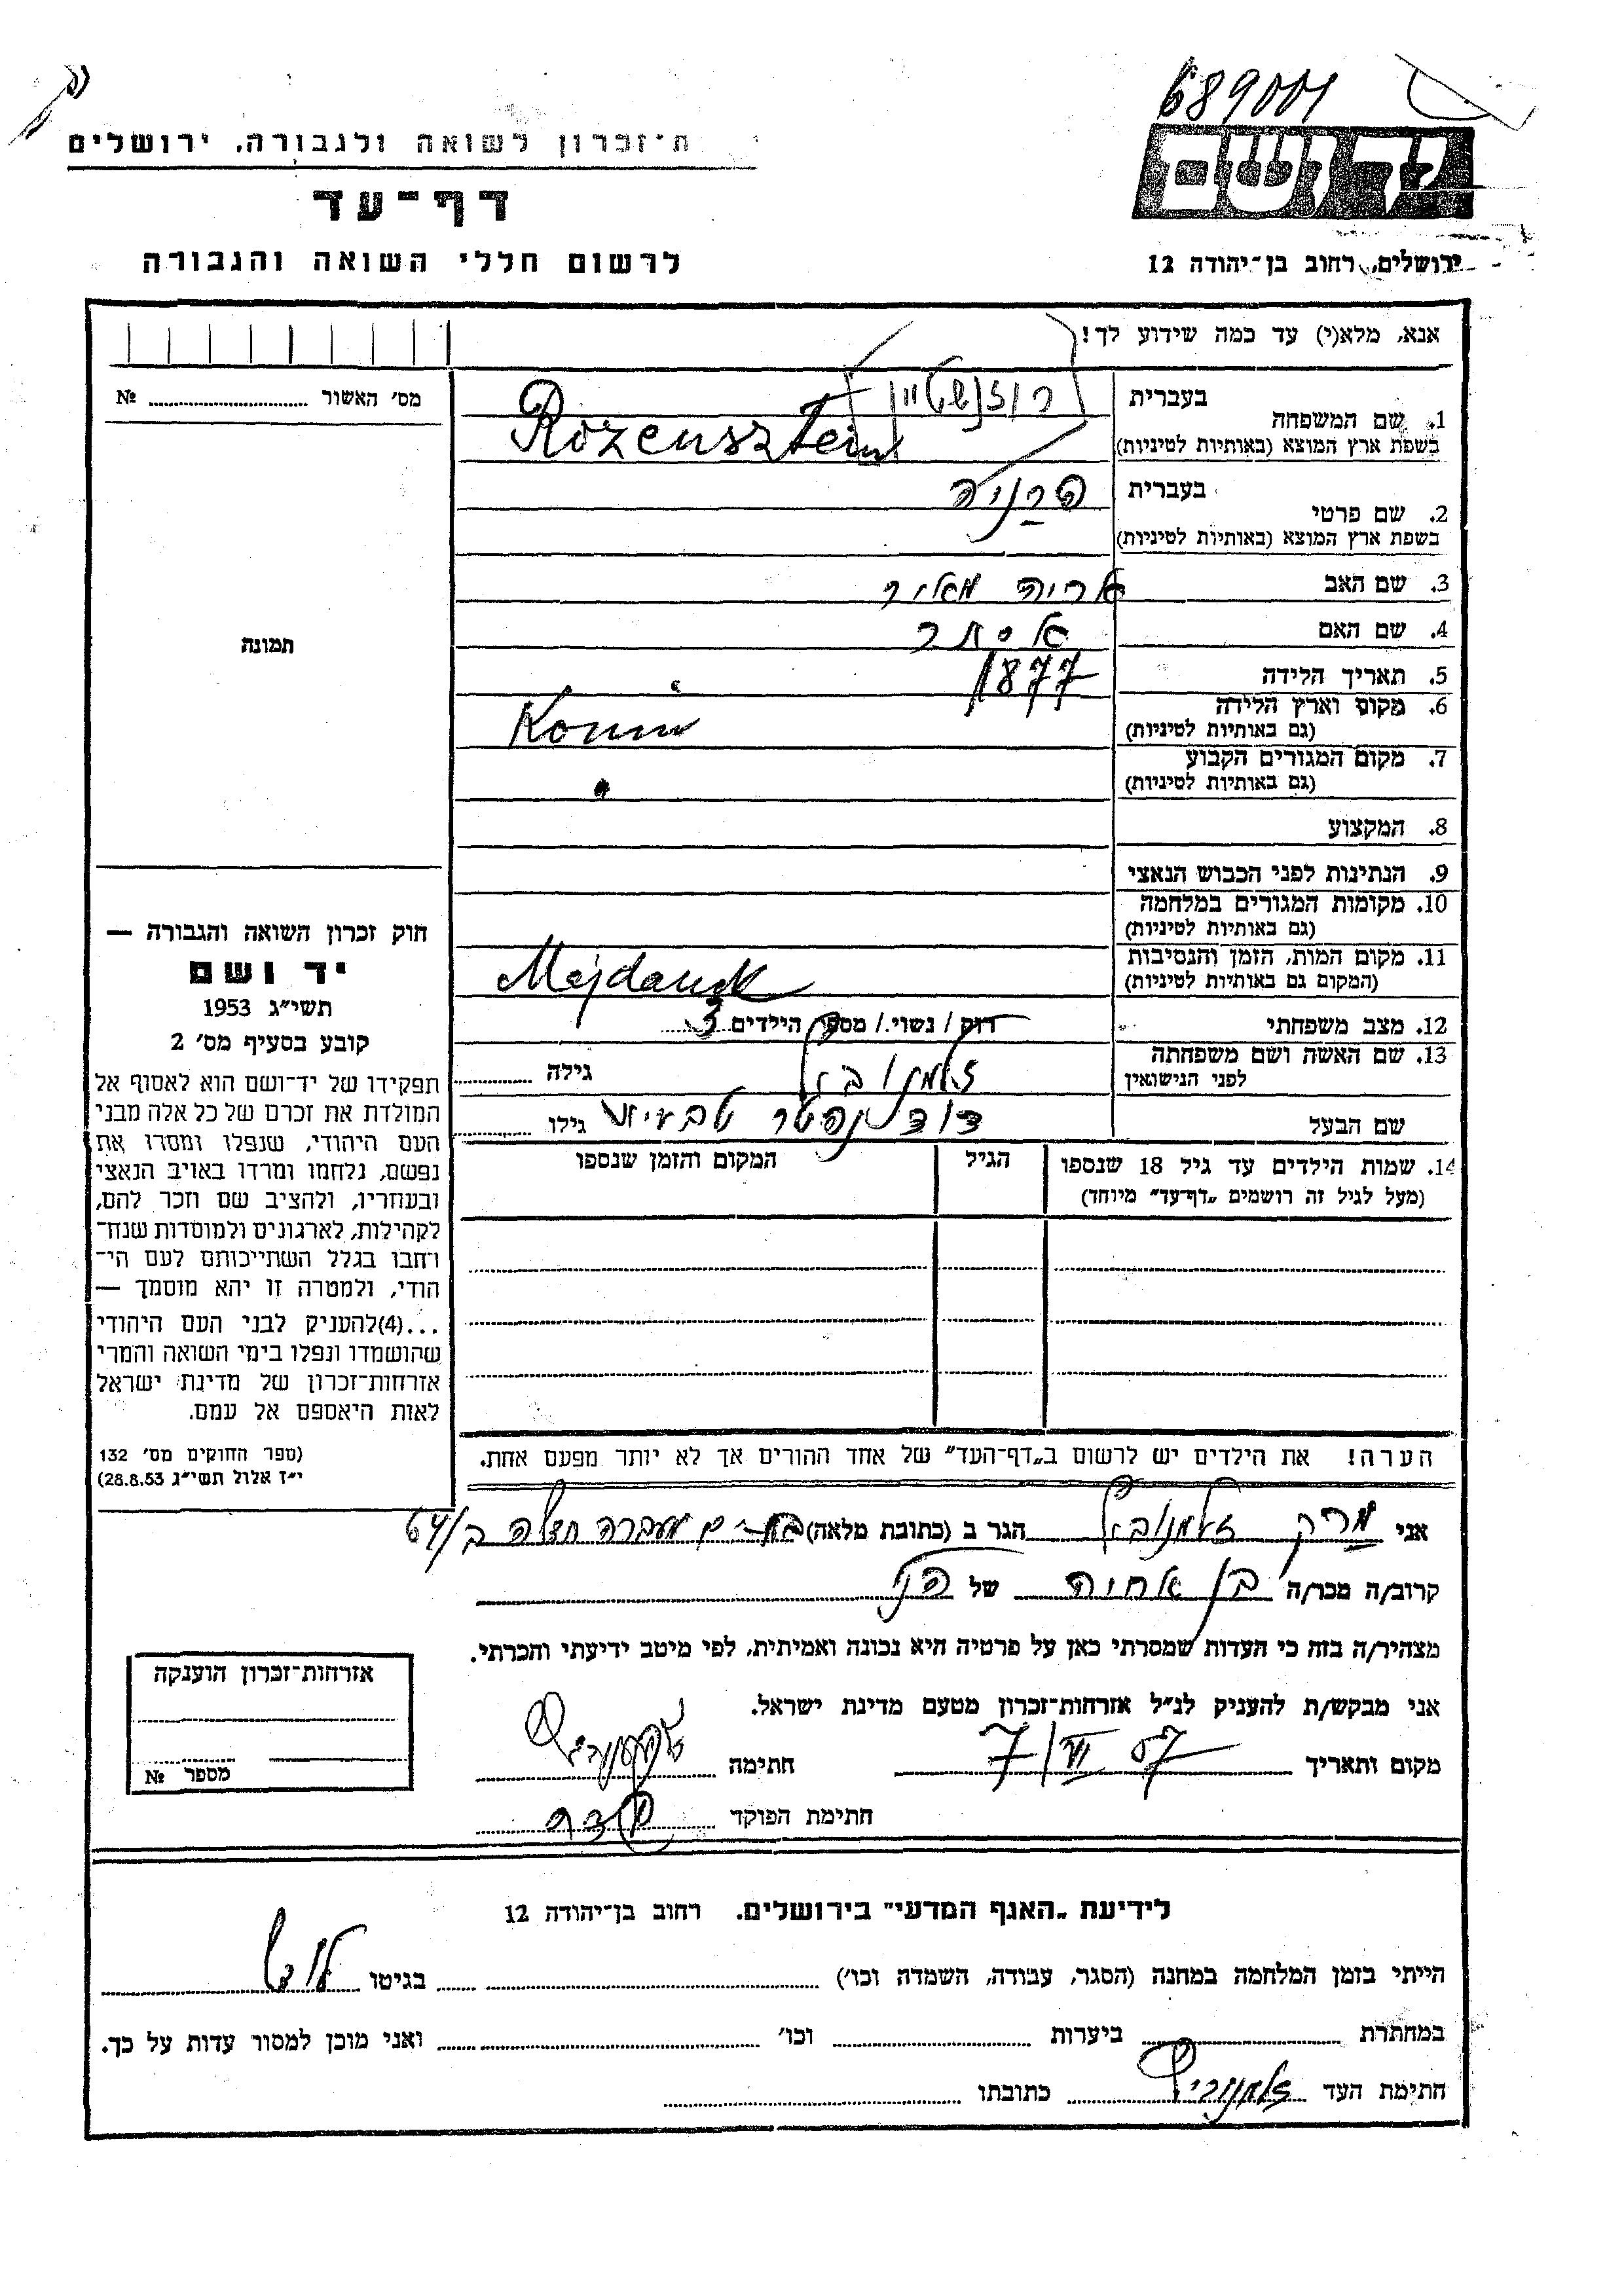 689001
ת־זכרון לשואה ולגבורה, ירושלים
יד ושם
דף־עד
ירושלים, רחוב בן־יהודה 12
לרשום חללי השואה והגבורה
אנא, מלא(י) עד כמה שידוע לך!
מס׳ האשור № 
1. שם המשפחה בעברית רוזנשטיין
בשפת ארץ המוצא (באותיות לטיניות) Rozensztein
2. שם פרטי בעברית פרניה
בשפת ארץ המוצא (באותיות לטיניות)
3. שם האב אריה מאיר
4. שם האם אסתר
5. תאריך הלידה 1877
6. מקום וארץ הלידה
(גם באותיות לטיניות) Konin
7. מקום המגורים הקבוע
(גם באותיות לטיניות)
8. המקצוע
9. הנתינות לפני הכבוש הנאצי
10. מקומות המגורים במלחמה
(גם באותיות לטיניות)
11. מקום המות, הזמן והנסיבות
(המקום גם באותיות לטיניות) Majdanek
12. מצב משפחתי רוק / נשוי / מספר הילדים 3
13. שם האשה ושם משפחתה
לפני הנישואין גילה
שם הבעל דוד גילו
תמונה
חוק זכרון השואה והגבורה —
יד ושם
תשי״ג 1953
קובע בסעיף מס׳ 2
תפקידו של יד־ושם הוא לאסוף אל
המולדת את זכרם של כל אלה מבני
העם היהודי, שנפלו ומסרו את
נפשם, נלחמו ומרדו באויב הנאצי
ובעוזריו, ולהציב שם וזכר להם,
לקהילות, לארגונים ולמוסדות שנח־
רחבו בגלל השתייכותם לעם הי־
הודי, ולמטרה זו יהא מוסמך —
...(4)להעניק לבני העם היהודי
שהושמדו ונפלו בימי השואה והמרי
אזרחות־זכרון של מדינת ישראל
לאות היאספם אל עמם.
(ספר החוקים מס׳ 132
י״ז אלול תשי״ג 28.8.53)
14. שמות הילדים עד גיל 18 שנספו הגיל המקום והזמן שנספו
(מעל לגיל זה רושמים „דף־עד״ מיוחד)
הערה! את הילדים יש לרשום ב„דף־העד״ של אחד ההורים אך לא יותר מפעם אחת.
אני מרק הגר ב (כתובת מלאה) מעברה ב/64
קרוב/ה מכר/ה בן אחיה של
מצהיר/ה בזה כי העדות שמסרתי כאן על פרטיה היא נכונה ואמיתית, לפי מיטב ידיעתי והכרתי.
אני מבקש/ת להעניק לנ״ל אזרחות־זכרון מטעם מדינת ישראל.
מקום ותאריך 7/VI 57 חתימה
חתימת הפוקד
אזרחות־זכרון הוענקה
מספר №
לידיעת „האגף המדעי״ בירושלים. רחוב בן־יהודה 12
הייתי בזמן המלחמה במחנה (הסגר, עבודה, השמדה וכו׳) בגיטו לודז
במחתרת ביערות וכו׳ ואני מוכן למסור עדות על כך.
חתימת העד כתובתו